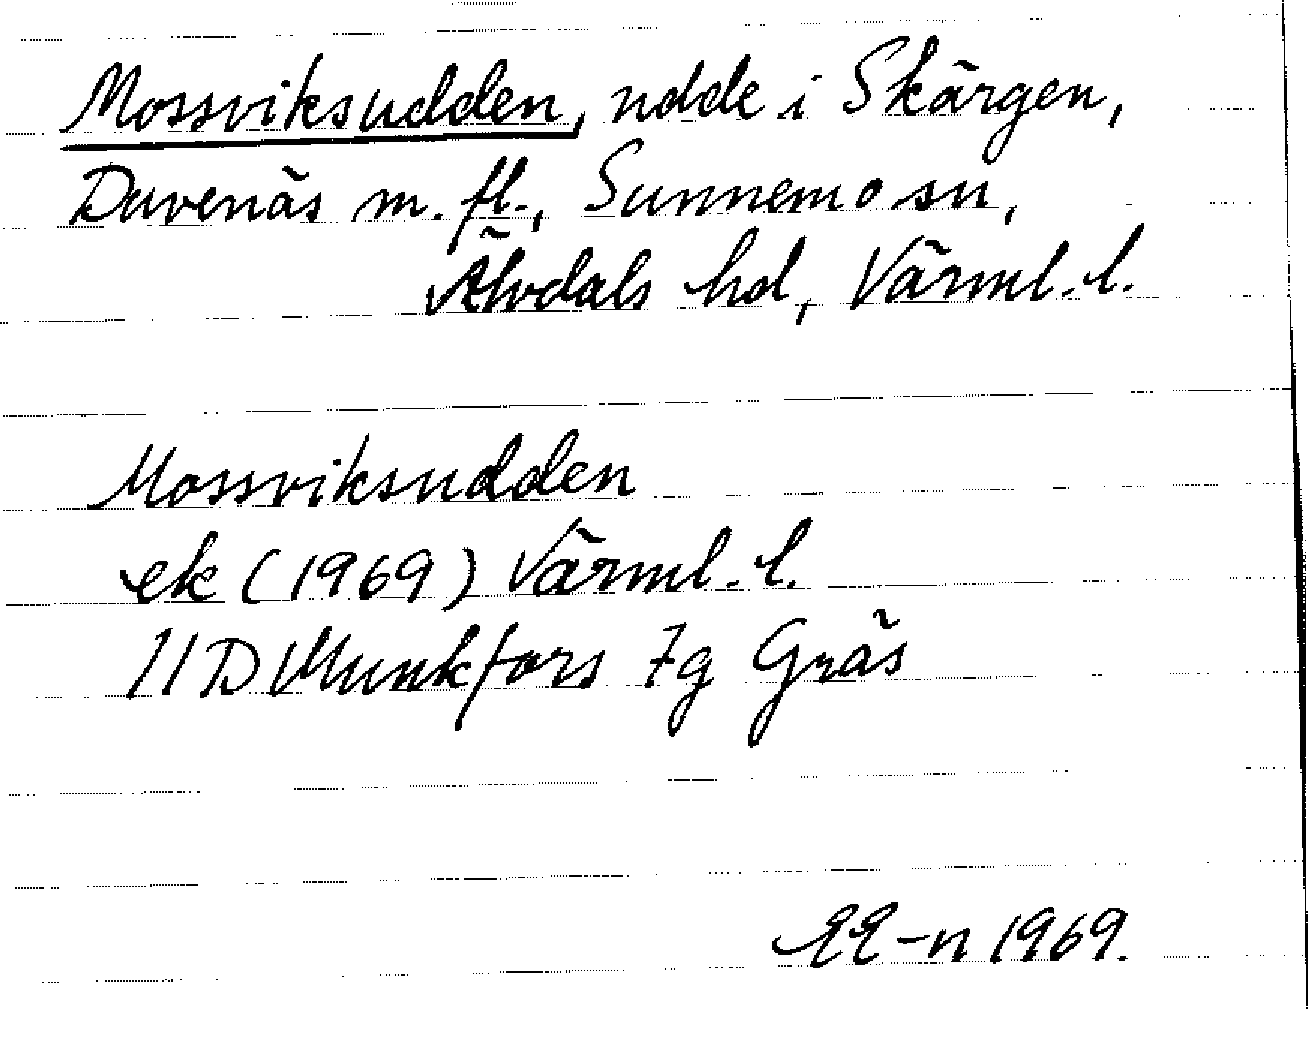 Mossviksudden, udde i Skärgen,
Duvenäs m. fl., Sunnemo sn,
Älvdals hd, Värml. l.
Mossviksudden
ek (1969) Värml. l.
11D Munkfors 7g Gräs
EE-n 1969.